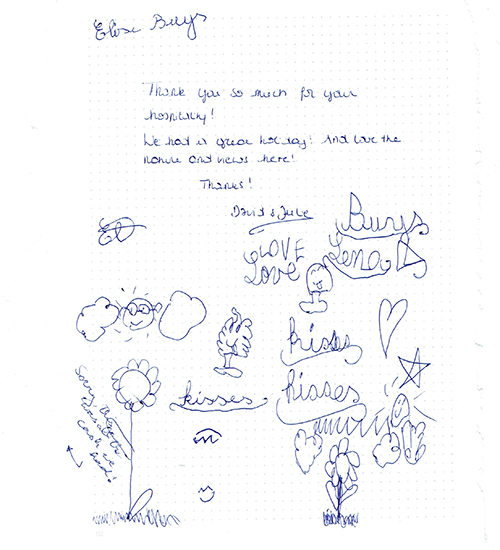 Elise Buys
Thank you so much for your
hospitality!
We had a great holiday! And love the
nature and views here!
Thanks!
David & Julie
Buys
LOVE
Lena B
Love
kisses
kisses
kisses
Sorry,